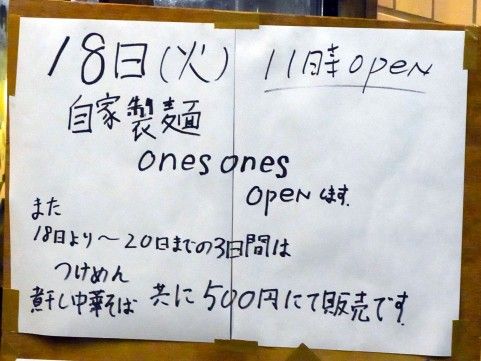 18日(火) 11時open
自家製麺
ones ones
openします
また
18日より〜20日までの3日間は
つけめん
煮干し中華そば 共に500円にて販売です